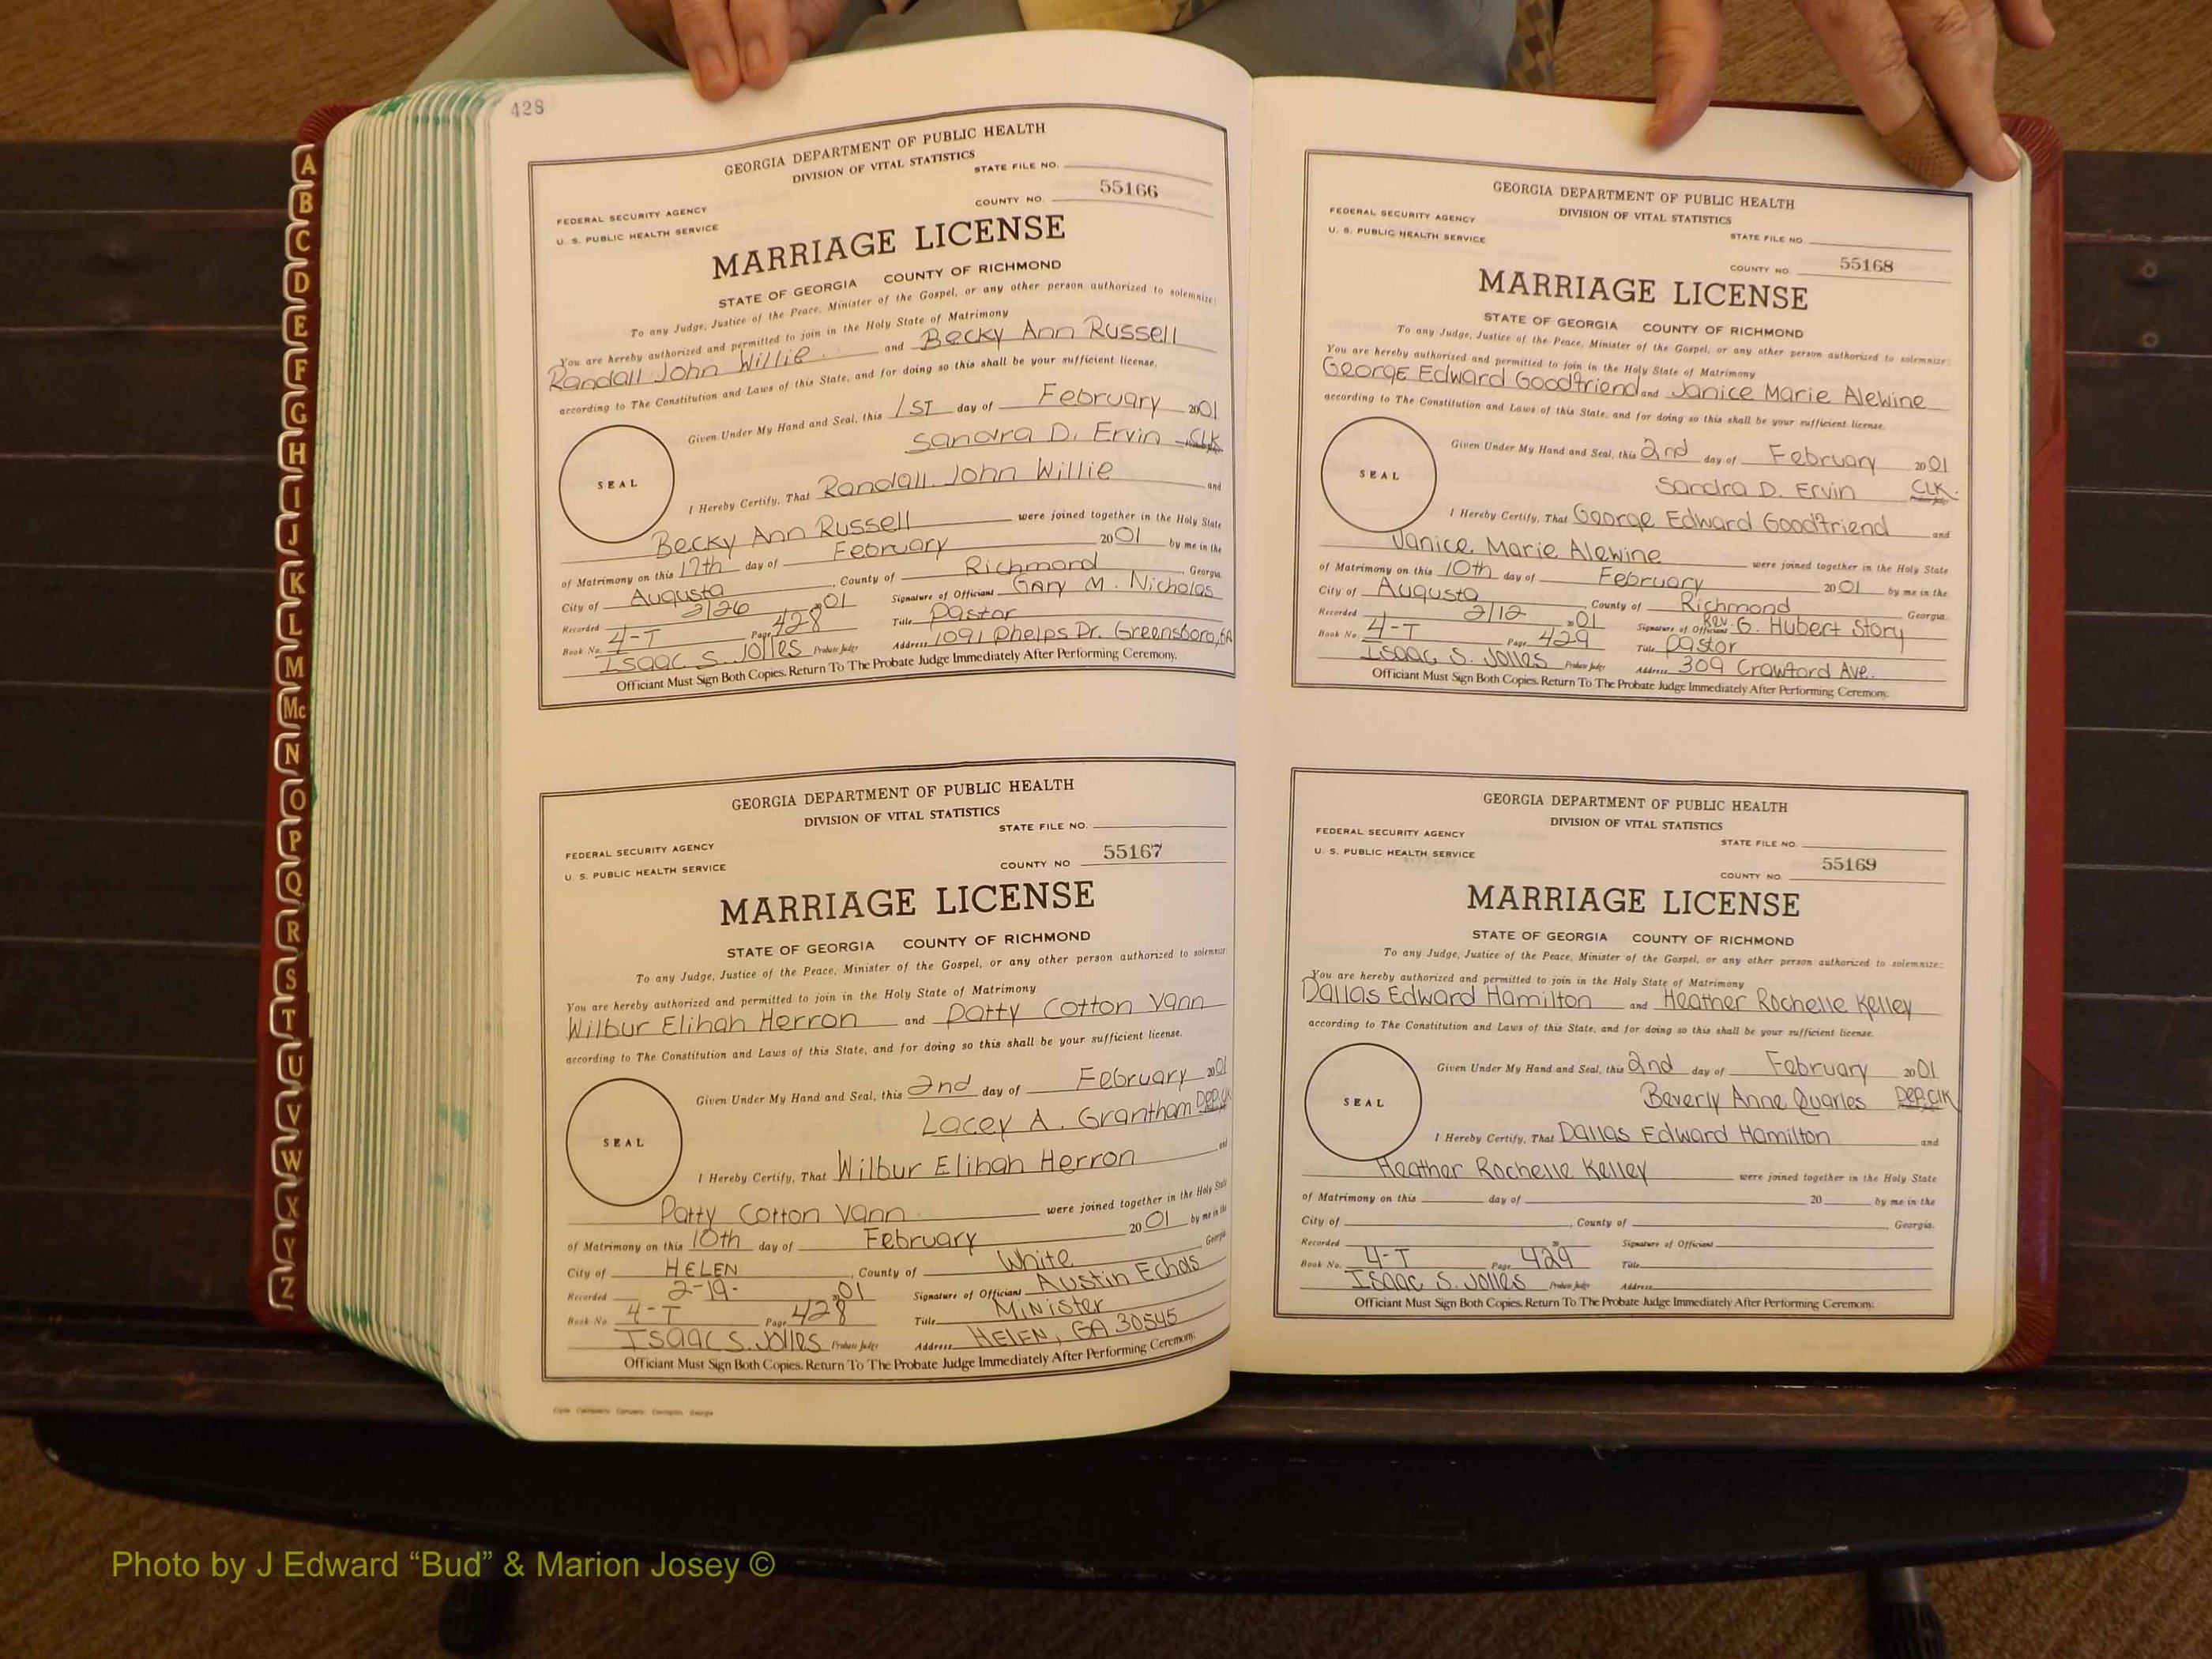 A
B
C
D
E
F
G
H
I
J
K
L
M
Mc
N
O
P
Q
R
S
T
U
V
W
X
Y
Z
428
GEORGIA DEPARTMENT OF PUBLIC HEALTH
DIVISION OF VITAL STATISTICS
STATE FILE NO.
FEDERAL SECURITY AGENCY
U. S. PUBLIC HEALTH SERVICE
COUNTY NO. 55166
MARRIAGE LICENSE
STATE OF GEORGIA COUNTY OF RICHMOND
To any Judge, Justice of the Peace, Minister of the Gospel, or any other person authorized to solemnize:
You are hereby authorized and permitted to join in the Holy State of Matrimony
Randall John Willie and Becky Ann Russell
according to The Constitution and Laws of this State, and for doing so this shall be your sufficient license.
Given Under My Hand and Seal, this 1ST day of February 2001
Sandra D. Ervin CLK
SEAL
I Hereby Certify, That Randall John Willie and
Becky Ann Russell were joined together in the Holy State
of Matrimony on this 17th day of February 2001 by me in the
City of Augusta, County of Richmond, Georgia.
Recorded 2/26 2001 Signature of Officiant Gary M. Nicholas
Book No. 4-T Page 428 Title Pastor
Isaac S. Jolles Probate Judge Address 1091 Phelps Dr. Greensboro, GA
Officiant Must Sign Both Copies. Return To The Probate Judge Immediately After Performing Ceremony.
GEORGIA DEPARTMENT OF PUBLIC HEALTH
DIVISION OF VITAL STATISTICS
STATE FILE NO.
FEDERAL SECURITY AGENCY
U. S. PUBLIC HEALTH SERVICE
COUNTY NO. 55167
MARRIAGE LICENSE
STATE OF GEORGIA COUNTY OF RICHMOND
To any Judge, Justice of the Peace, Minister of the Gospel, or any other person authorized to solemnize:
You are hereby authorized and permitted to join in the Holy State of Matrimony
Wilbur Elihah Herron and Patty Cotton Vann
according to The Constitution and Laws of this State, and for doing so this shall be your sufficient license.
Given Under My Hand and Seal, this 2nd day of February 2001
Lacey A. Grantham Dep. Clk
SEAL
I Hereby Certify, That Wilbur Elihah Herron and
Patty Cotton Vann were joined together in the Holy State
of Matrimony on this 10th day of February 2001 by me in the
City of HELEN, County of White Georgia
Recorded 2-19- 2001 Signature of Officiant Austin Echols
Book No. 4-T Page 428 Title Minister
Isaac S. Jolles Probate Judge Address HELEN, GA 30545
Officiant Must Sign Both Copies. Return To The Probate Judge Immediately After Performing Ceremony.
GEORGIA DEPARTMENT OF PUBLIC HEALTH
DIVISION OF VITAL STATISTICS
STATE FILE NO.
FEDERAL SECURITY AGENCY
U. S. PUBLIC HEALTH SERVICE
COUNTY NO. 55168
MARRIAGE LICENSE
STATE OF GEORGIA COUNTY OF RICHMOND
To any Judge, Justice of the Peace, Minister of the Gospel, or any other person authorized to solemnize:
You are hereby authorized and permitted to join in the Holy State of Matrimony
George Edward Goodfriend and Janice Marie Alewine
according to The Constitution and Laws of this State, and for doing so this shall be your sufficient license.
Given Under My Hand and Seal, this 2nd day of February 2001
Sandra D. Ervin CLK.
SEAL
I Hereby Certify, That George Edward Goodfriend and
Janice Marie Alewine were joined together in the Holy State
of Matrimony on this 10th day of February 2001 by me in the
City of Augusta, County of Richmond Georgia.
Recorded 2/12 2001 Signature of Officiant Rev. G. Hubert Story
Book No. 4-T Page 429 Title Pastor
Isaac S. Jolles Probate Judge Address 309 Crawford Ave.
Officiant Must Sign Both Copies. Return To The Probate Judge Immediately After Performing Ceremony.
GEORGIA DEPARTMENT OF PUBLIC HEALTH
DIVISION OF VITAL STATISTICS
STATE FILE NO.
FEDERAL SECURITY AGENCY
U. S. PUBLIC HEALTH SERVICE
COUNTY NO. 55169
MARRIAGE LICENSE
STATE OF GEORGIA COUNTY OF RICHMOND
To any Judge, Justice of the Peace, Minister of the Gospel, or any other person authorized to solemnize:
You are hereby authorized and permitted to join in the Holy State of Matrimony
Dallas Edward Hamilton and Heather Rochelle Kelley
according to The Constitution and Laws of this State, and for doing so this shall be your sufficient license.
Given Under My Hand and Seal, this 2nd day of February 2001
Beverly Anne Quarles Dep. Clk
SEAL
I Hereby Certify, That Dallas Edward Hamilton and
Heather Rochelle Kelley were joined together in the Holy State
of Matrimony on this day of 20 by me in the
City of , County of , Georgia.
Recorded 20 Signature of Officiant
Book No. 4-T Page 429 Title
Isaac S. Jolles Probate Judge Address
Officiant Must Sign Both Copies. Return To The Probate Judge Immediately After Performing Ceremony.
Photo by J Edward “Bud” & Marion Josey ©